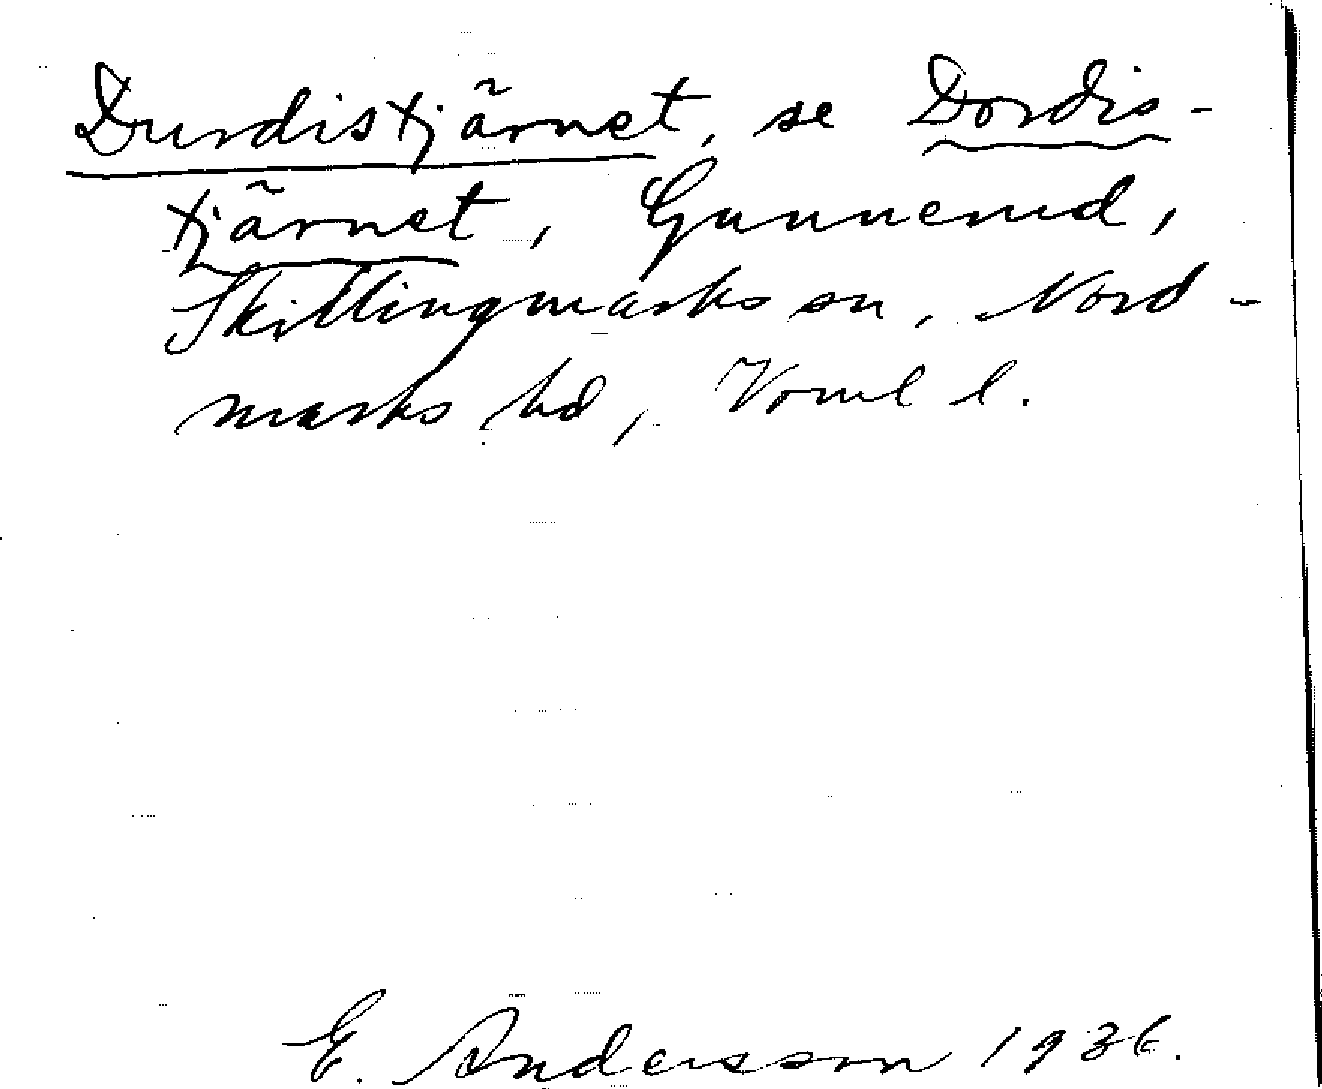 Durdistjärnet, se Dordis-
tjärnet, Gunnerud,
Skillingmarks sn, Nord-
marks hd, Värml l.
E. Andersson 1936.